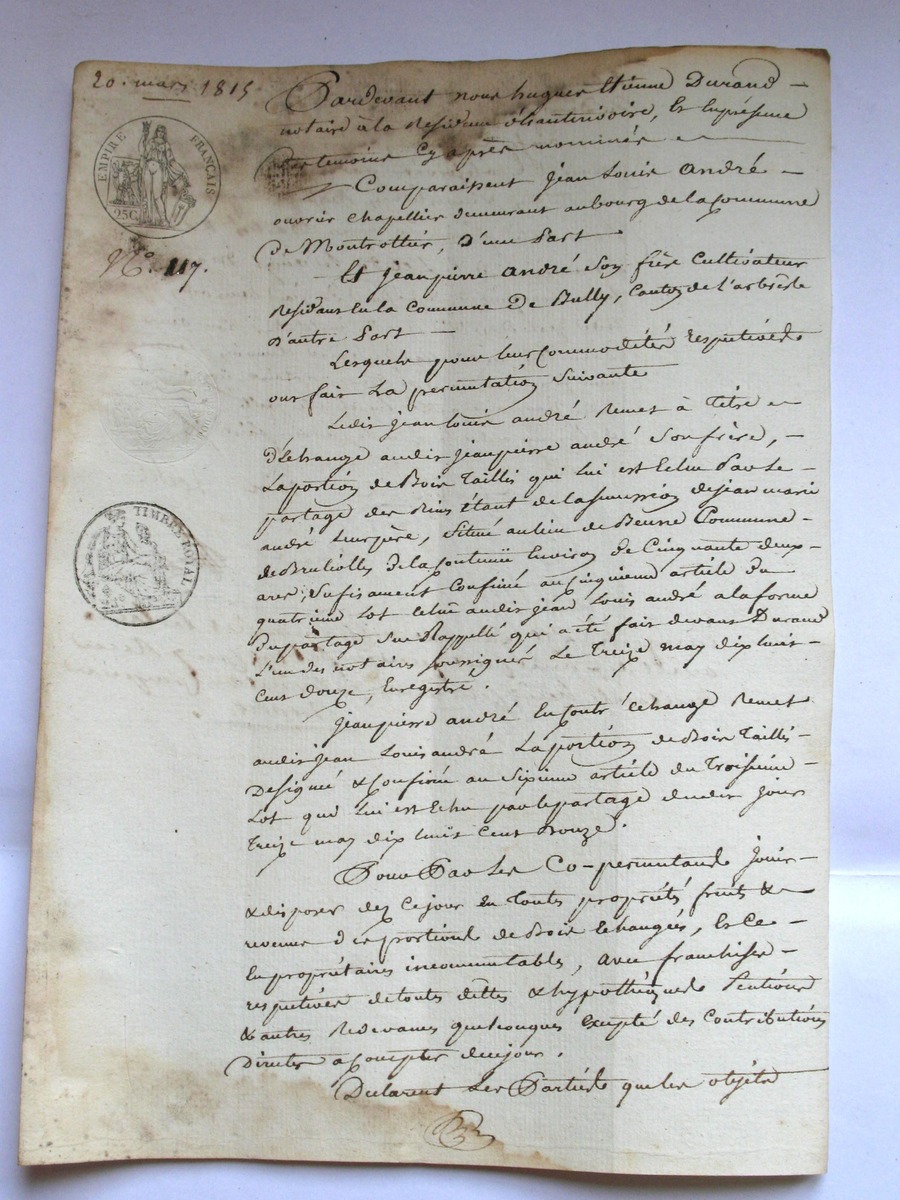 20. mars 1815
EMPIRE FRANÇAIS
25C
No. 117.
TIMBRE ROYAL
Pardevant nous hugues Etienne Durand
notaire à la Residence de Santinivoire, Et En présence
témoins Cy après nommés
Comparaissent Jean Louis André
ouvrier Chapellier demeurant au bourg de la Commune
de Montrottier, D'une Part
Et Jean pierre André Son frère Cultivateur
Résidant En la Commune De Bully, Canton de l'arbresle
D'autre Part
Lesquels pour leur Commodités respectives
ont fait La permutation Suivante
Ledit jean louis andré Remet à Titre
D'Echange audit jean pierre andré Son frère,
La portion de Bois Taillis qui lui est Echu Par Le
partage des Biens étant de la Sucession de jean marie
andré Leur père, Situé au lieu de Commune
de Brulliolles De la Contenüe Environ de Cinquante deux
ares, Sufisament Confiné au Cinquieme article Du
quatrieme Lot Echu audit jean Louis andré a la forme
Du partage Sus Rappellé qui a été fait devant Durand
L'un des notaires Soussignés Le Treize may dix huit
Cent Douze, Enregistré.
Jean pierre andré En Contr'échange Remet
audit jean Louis andré La portion de Bois Taillis
Designé & Confiné au Sixieme article du Troisieme
Lot qui lui est Echu par le partage dudit jour
Treize may dix huit Cent Douze.
Pour Par Les Co-permutants jouir
& disposer dez Ce jour En toutes propriétés fruits &
revenus des portions de Bois Echangées, Et Ce
En propriétaires incommutables, avec franchises
respectives de toutes dettes & hypothèques Pentions
& autres Redevances quelconques Excepté des Contributions
Directes à Compter de ce jour.
Declarent Les Parties que les objets